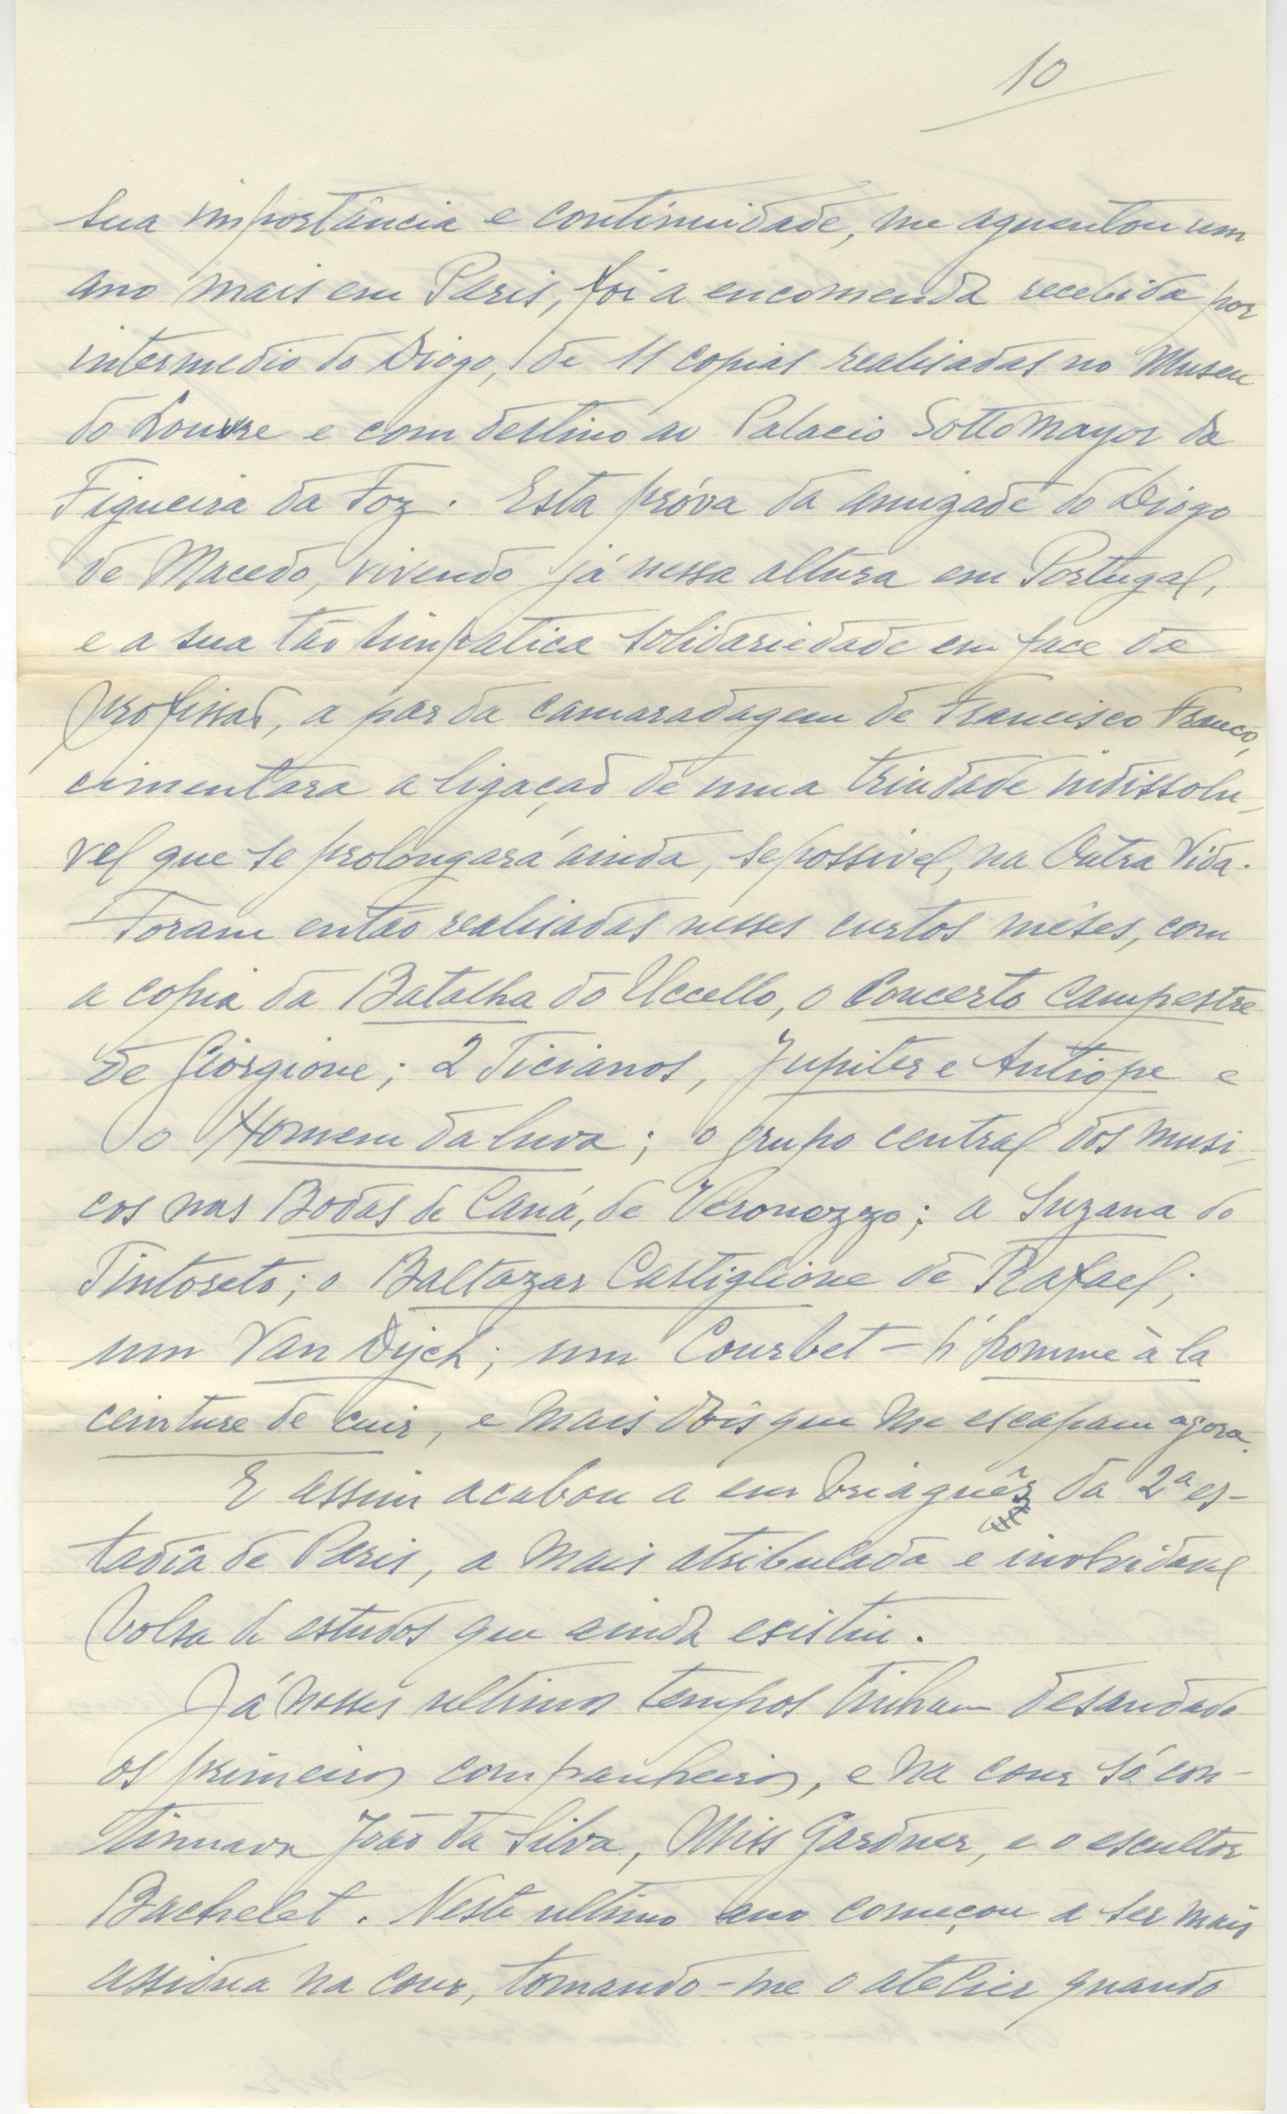 10
sua importância e continuidade, me aguentou um
ano mais em Paris, foi a encomenda recebida por
intermedio do Diogo, de 11 copias realisadas no Museu
do Louvre e com destino ao Palacio Sotto Mayor da
Figueira da Foz. Esta próva da amizade do Diogo
de Macedo, vivendo já nessa altura em Portugal,
e a sua tão simpatica solidariedade em face da
profissão, a par da camaradagem de Francisco Franco,
cimentara a ligação de uma trindade indissolu-
vel que se prolongará ainda, se possivel, na Outra Vida.
Foram então realisadas nesses curtos mêses, com
a copia da Batalha do Uccello, o Concerto Campestre
de Giorgione; 2 Ticianos, Jupiter e Antiope e
o Homem da luva; o grupo central dos musi-
cos nas Bodas de Caná, de Veronezzo; a Suzana do
Tintoreto; o Baltazar Castiglione de Rafael;
um Van Dijck; um Courbet - L'homme à la
ceinture de cuir, e mais dois que me escapam agora.
E assim acabou a embriaguês da 2ª es-
tadia de Paris, a mais atribulada e inolvidavel
bolsa de estudos que ainda existiu.
Já nesses ultimos tempos tinham desandado
os primeiros companheiros, e na cour só con-
tinuava João da Silva, Miss Gardner, e o escultor
Bachelet. Neste ultimo ano começou a ser mais
assidua na cour, tomando-me o atelier quando